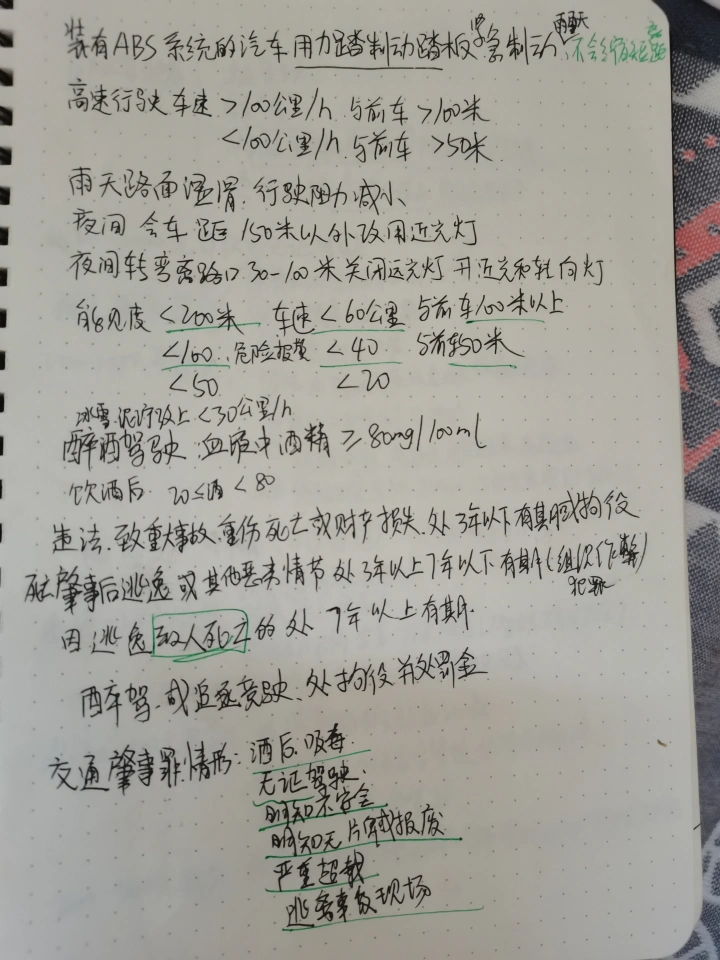 装有ABS系统的汽车用力踏制动踏板紧急制动 雨天 不会缩短距
高速行驶车速 >100公里/h 与前车 >100米
<100公里/h 与前车 >50米
雨天路面湿滑, 行驶阻力减小
夜间 会车 距 150米以外改用近光灯
夜间转弯离路口30-100米关闭远光灯 开近光和转向灯
能见度 <200米 车速 <60公里 与前车100米以上
<100 危险报警 <40 与前车50米
<50 <20
冰雪.泥泞路上 <30公里/h
醉酒驾驶: 血液中酒精 ≥80mg/100ml
饮酒后 20≤酒<80
违法、致重大事故、重伤死亡或财产损失、处3年以下有期或拘役
肇事后逃逸或其他恶劣情节处3年以上7年以下有期(组织作弊)
犯罪
因逃逸致人死亡的处 7年以上有期.
醉驾、或追逐竞驶、处拘役并处罚金
交通肇事罪情形: 酒后.吸毒.
无证驾驶.
明知不安全
明知无牌或报废
严重超载
逃离事故现场